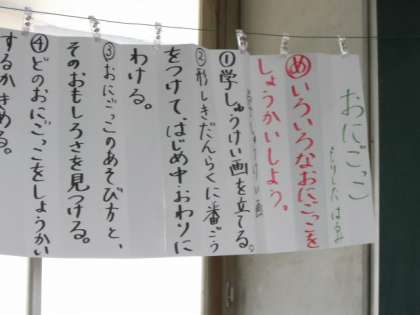 おにごっこ
もりした はるみ
め いろいろなおにごっこを
しょうかいしよう。
①学しゅうけい画を立てる。
②形しきだんらくに番ごう
をつけて、はじめ中おわりに
わける。
③おにごっこのあそび方と、
そのおもしろさを見つける。
④どのおにごっこをしょうかい
するかきめる。